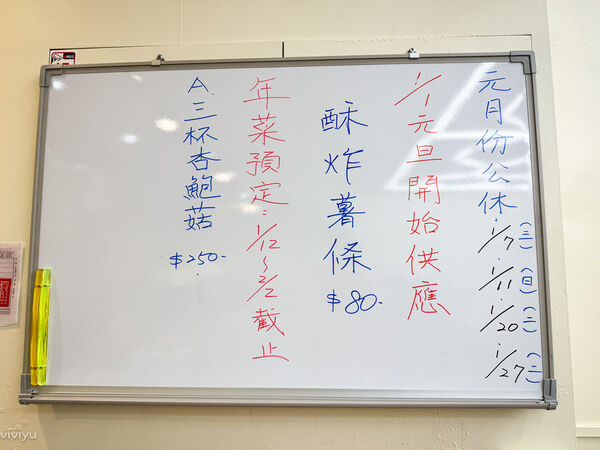 元月份公休:1/7(三)
·1/11(日)
·1/20(二)
·1/27(二)
1/1元旦開始供應
酥炸薯條 $80-
年菜預定:1/12~2/2截止
A.三杯杏鮑菇 $250-
viviyu